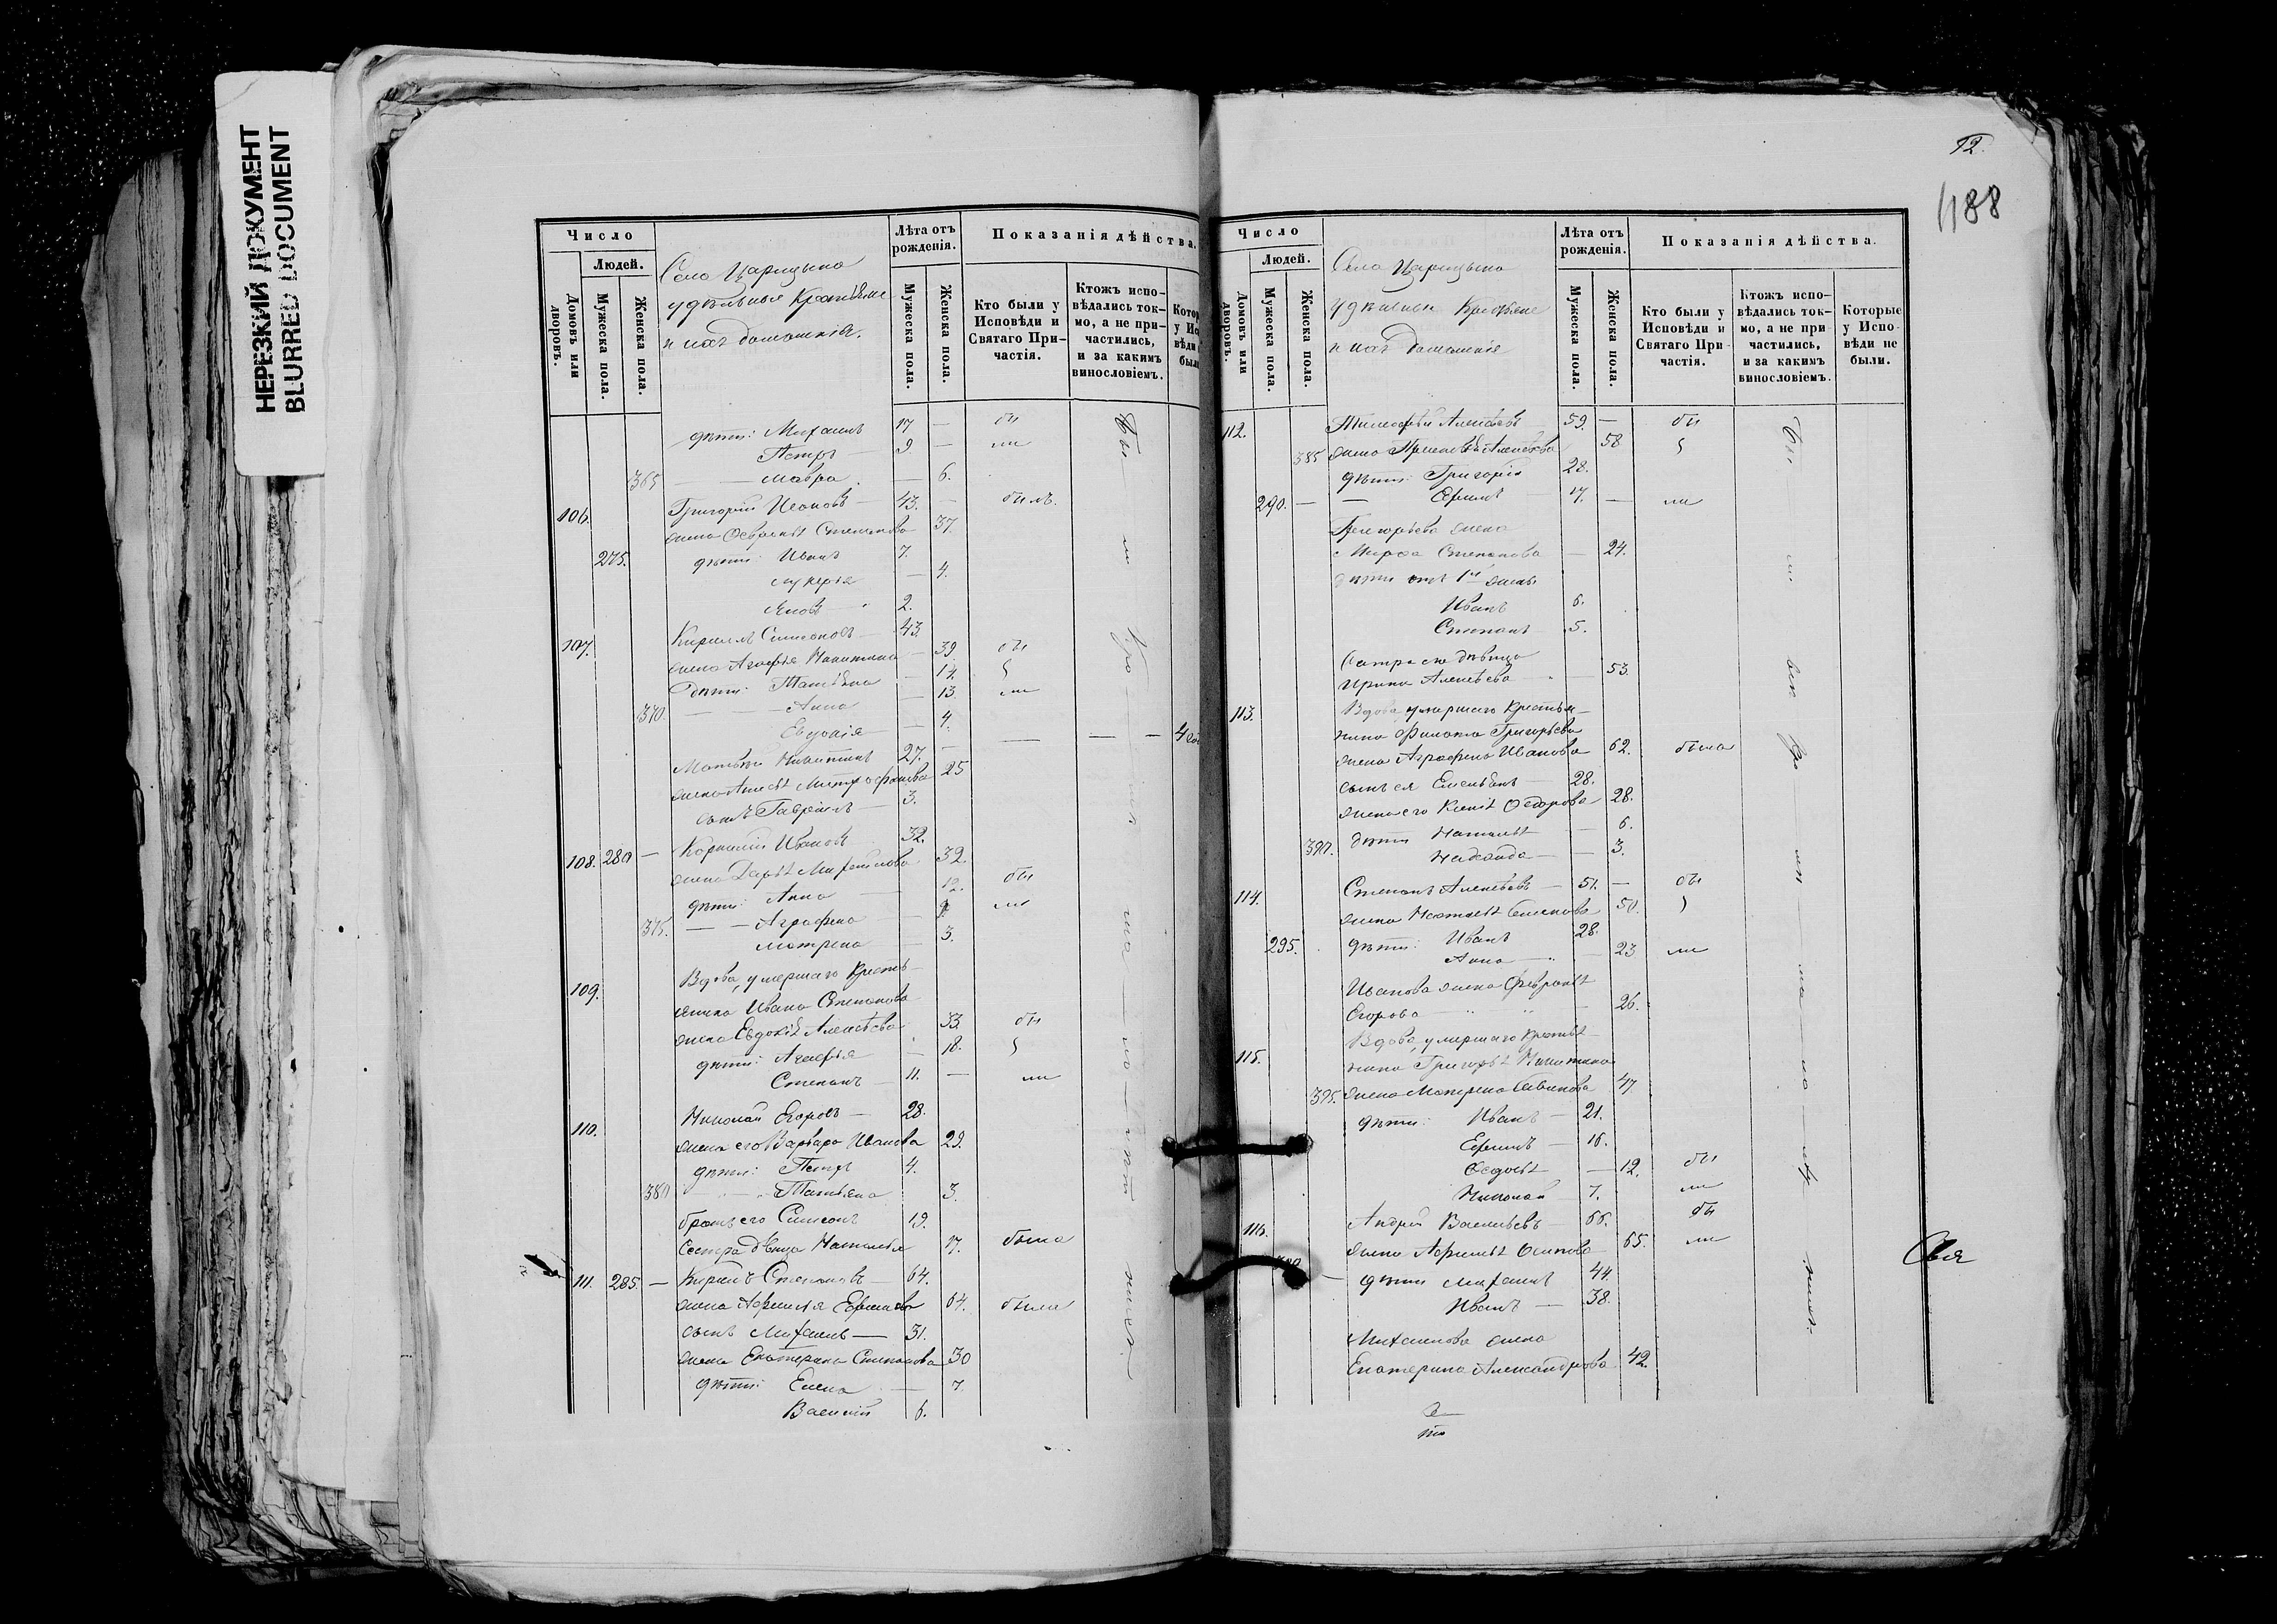 НЕРЕЗКИЙ ДОКУМЕНТ
BLURRED DOCUMENT
Число
Людей.
Домовъ или дворовъ.
Мужеска пола.
Женска пола.
Село Царицына
удѣльные Крестьяне
и ихъ домашніе.
Лѣта отъ рожденія.
Мужеска пола.
Женска пола.
Показанія дѣйства.
Кто были у Исповѣди и Святаго При-частія.
Ктожъ испо-вѣдались ток-мо, а не при-частились, и за какимъ винословіемъ.
дѣти: Михаилъ 17 — бы
Петръ 9. — ли
365 — — Мавра — 6.
106. Григорій Ивановъ — 43. — былъ.
жена Степанова 37.
275. дѣти: Иванъ 7.
Лукерья — 4.
Яковъ 2.
107. Кириллъ Симоновъ — 43.
жена Агафья Никитина — 39 бы
дѣти: Татьяна — 17.
370. — — Анна — 13. ли
Евдокія — 4.
Матвѣй Никитинъ 27. —
жена Митрофанова 25
сынъ Гавріилъ — 3.
108. 280 — Корнилій Ивановъ 32.
жена Дарья Михайлова 32.
дѣти: Анна — 12. бы
375. — — Аграфена — ли
Матрена — 3.
109. Вдова, умершаго Кресть-
янина Ивана Степанова
жена Евдокія Алексѣева 33. бы
дѣти: Агафья — 18.
Степанъ — 11. — ли
110. Николай Егоровъ — 28.
жена его Варвара Иванова 29.
дѣти: Петръ 4.
380 — — Татьяна 3.
братъ его Симеонъ 19.
Сестра дѣвица Наталья 17. была
111. 285. — Кирилъ Степановъ — 64.
жена Ефимова 64. была
сынъ Михаилъ — 31.
жена Екатерина Степанова 30
дѣти: Елена — 7.
Василій 6.
12.
1188
Число
Людей.
Домовъ или дворовъ.
Мужеска пола.
Женска пола.
Село Царицына
удѣльные Крестьяне
и ихъ домашніе
Лѣта отъ рожденія.
Мужеска пола.
Женска пола.
Показанія дѣйства.
Кто были у Исповѣди и Святаго При-частія.
Ктожъ испо-вѣдались ток-мо, а не при-частились, и за какимъ винословіемъ.
Которые у Испо-вѣди не были.
112. Тимофѣй Алексѣевъ 59. — бы
385 жена Алексѣева 58
дѣти: Григорій 28.
290. — — Ефимъ 17. — ли
Григорьева жена
Марѳа Степанова — 24.
дѣти отъ 1й жены
Иванъ 6.
Степанъ — 5.
Сестра его дѣвица
Ирина Алексѣева — 53.
113. Вдова, умершаго Крестья-
нина Григорьева
жена Аграфена Иванова 62. была
сынъ ея 28.
жена его Ксенія Ѳедорова — 28.
дѣти Наталья — 6.
390. Надежда — — 3.
114. Степанъ Алексѣевъ — 51. — бы
жена Наталья 50.
295. дѣти: Иванъ 28.
Анна — — 23 ли
Иванова жена Февронья
Егорова — 26.
115. Вдова, умершаго Кресть-
янина Григорья Никитина
395. жена Матрена 47
дѣти: Иванъ — 21.
Ефимъ — 16.
Ѳедосья — 12. бы
Николай — 7. ли
116. Андрей Васильевъ — 66. бы
жена Осипова 65. ли
— дѣти Михаилъ 44.
Иванъ — 38.
Михаилова жена
Екатерина Александрова 42.